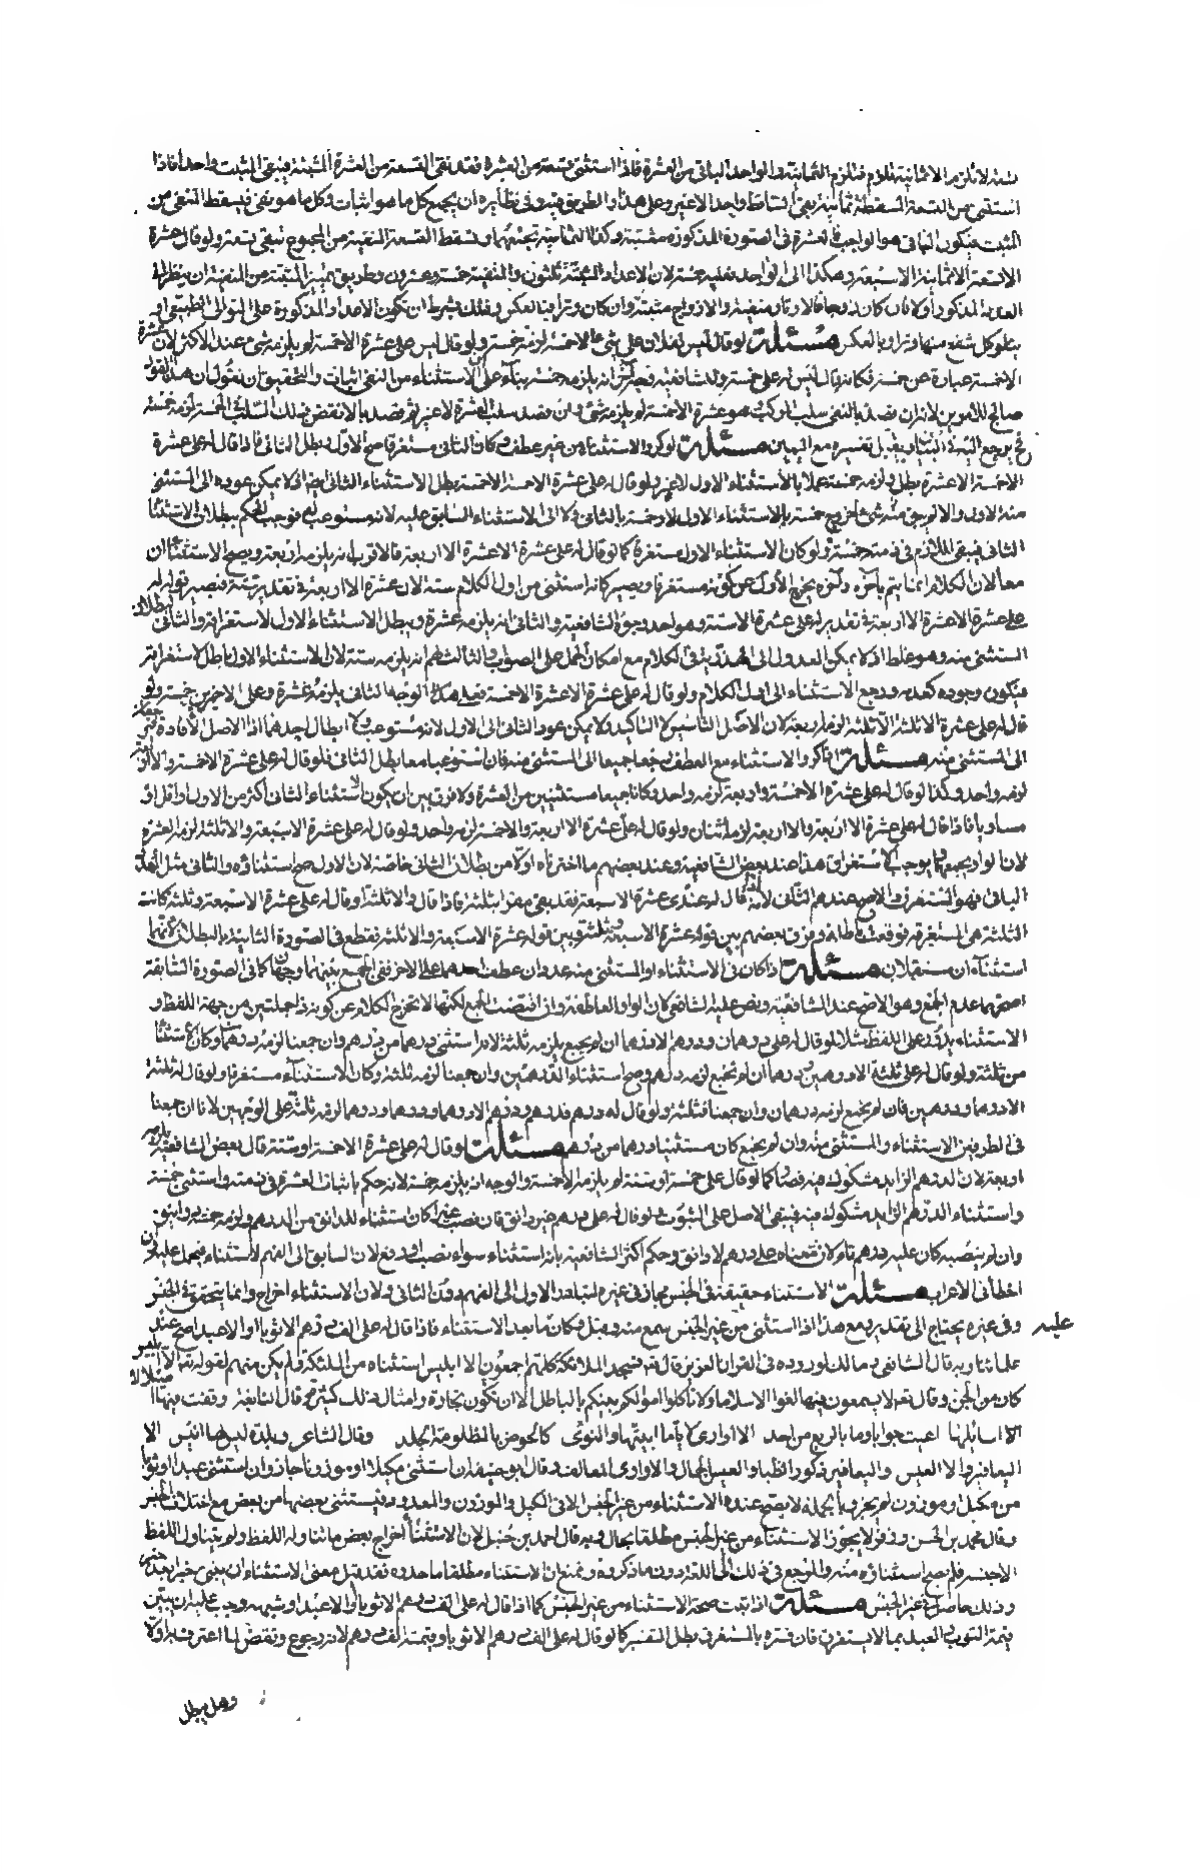 تسعة لا تلزم الا ثمانية فلا تلزم فتلزم الثمانية والواحد الباقي من العشرة فاذا استثنى تسعة من العشرة فقد نفى التسعة من العشرة المثبتة فيبقى المثبت واحدا فاذا
استثنى من التسعة المسقطة ثمانية بقى الساقط واحدا لا غير وعلى هذا والطريق فيه وفي نظايره ان يجمع كل ما هو اثبات وكل ما هو نفي فيسقط المنفي من
المثبت فيكون الباقي هو الواجب فالعشرة في الصورة المذكورة مثبتة وكذا الثمانية تجمعهما وتسقط التسعة المنفية من المجموع تبقى تسعة ولو قال عشرة
الا تسعة الا ثمانية الا سبعة وهكذا الى الواحد فعليه خمسة لان الاعداد المثبتة ثلثون والمنفية خمسة وعشرون وطريق تمييز المثبتة من المنفية ان ينظر الى
العدد المذكور اولا فان كان زوجا فالاوتار منفية والازواج مثبتة وان كان وترا فبالعكس وذلك بشرط ان تكون الاعداد المذكورة على التوالي الطبيعي او
يتلو كل شفع منها وترا وبالعكس مسئلة لو قال ليس لفلان علي شي الا خمسة لزمه خمسة ولو قال ليس علي عشرة الا خمسة لم يلزمه شي عند الاكثر لان عشرة
الا خمسة عبارة عن خمسة فكانه قال ليس له علي خمسة وللشافعية وجه اخر انه يلزمه خمسة بناء على ان الاستثناء من النفي اثبات والتحقيق ان نقول ان هذا القول
صالح للامرين لانه ان قصد بالنفي سلب المركب وهو عشرة الا خمسة لم يلزمه شي وان قصد سلب العشرة لا غير ثم قصد بالا نقض ذلك السلب الخمسة لزمه خمسة
يرجع اليه في البيان ويقبل تفسيره مع اليمين مسئلة لو كرر الاستثناء من غير عطف وكان الثاني مستغرقا صح الاول وبطل الثاني فاذا قال له علي عشرة
الا خمسة الا عشرة بطل ولزمه خمسة عملا بالاستثناء الاول لا غير ولو قال له علي عشرة الا خمسة الا خمسة بطل الاستثناء الثاني ايضا لانه لا يمكن عوده الى المستثنى
منه الاول والا لم يبق منه شي اخرج خمسة بالاستثناء الاول وخمسة بالثاني ولا الى الاستثناء السابق عليه لانه مستوعب له فوجب الحكم ببطلان الاستثناء
الثاني فيبقى اللازم في ذمته خمسة ولو كان الاستثناء الاول مستغرقا كما لو قال له علي عشرة الا عشرة الا اربعة فالاقرب انه يلزمه اربعة ويصح الاستثناءان
معا لان الكلام انما يتم بآخره وآخره يخرج الاول عن كونه مستغرقا ويصير كانه استثنى من اول الكلام ستة لان عشرة الا اربعة في تقدير ستة فيصير قوله له
علي عشرة الا عشرة الا اربعة في تقدير له علي عشرة الا ستة وهو احد وجوه الشافعية والثاني انه يلزمه عشرة ويبطل الاستثناء الاول لاستغراقه والثاني لبطلان
المستثنى منه وهو غلط اذ لا يمكن العدول الى الهذرية في الكلام مع امكان الحمل على الصواب والثالث لهم انه يلزمه ستة لان الاستثناء الاول باطل لاستغراقه
فيكون وجوده كعدمه ورجع الاستثناء الى اول الكلام ولو قال له علي عشرة الا عشرة الا خمسة فعلى هذا الوجه الثاني يلزمه عشرة وعلى الاخيرين خمسة ولو
قال له علي عشرة الا ثلثة الا ثلثة لزمه اربعة لان الاصل التاسيس لا التاكيد ولا يمكن عود الثاني الى الاول لانه مستوعب ولا ابطال احدهما اذ الاصل الافادة
الى المستثنى منه مسئلة اذا كرر الاستثناء مع العطف رجعا جميعا الى المستثنى منه فان استوعبا معا بطل الثاني فلو قال له علي عشرة الا خمسة والا اربعة
لزمه واحد وكذا لو قال له علي عشرة الا خمسة واربعة لزمه واحد وكانا جميعا مستثنيين من العشرة ولا فرق بين ان يكون الاستثناء الثاني اكثر من الاول او اقل او
مساويا فاذا قال له علي عشرة الا اربعة والا اربعة لزمه اثنان ولو قال له علي عشرة الا اربعة والا خمسة لزمه واحد ولو قال له علي عشرة الا سبعة والا ثلثة لزمه العشرة
لان الواو يجمعهما يوجب الاستغراق هذا عند بعض الشافعية وعند بعضهم ما اخترناه اولا من بطلان الثاني خاصة لان الاول صح استثناؤه والثاني مثل
الباقي فهو المستغرق والاصح عندهم الثاني لانه لو قال له عندي عشرة الا سبعة فقد بقي مقرا بثلثة فاذا قال والا ثلثة او قال له علي عشرة الا سبعة وثلثة كانت
الثلثة هي المستغرقة فوقعت باطلة وفرق بعضهم بين قوله عشرة الا سبعة وثلثة وبين قوله عشرة الا سبعة والا ثلثة فقطع في الصورة الثانية بالبطلان لانهما
استثناءان مستقلان مسئلة اذا كان في الاستثناء او المستثنى منه عددان عطف احدهما على الاخر ففي الجمع بينهما وجهان كما في الصورة السابقة
اصحهما عدم الجمع وهو الاصح عند الشافعية ونص عليه الشافعي كان الواو العاطفة وان اقتضت الجمع لكنها لا تخرج الكلام عن كونه ذا جملتين من جهة اللفظ و
الاستثناء يدور على اللفظ مثلا لو قال له علي درهمان ودرهم الا درهما ان لم يجمع يلزمه ثلثة لانه استثنى درهما من درهم وان جمعنا لزمه درهمان وكان الاستثناء
من ثلثة ولو قال له علي ثلثة الا درهمين ودرهما ان لم نجمع لزمه درهم وصح استثناء الدرهمين وان جمعنا لزمه ثلثة وكان الاستثناء مستغرقا ولو قال له ثلثة
الا درهما ودرهمين فان لم نجمع لزمه درهمان وان جمعنا فثلثة ولو قال له درهم ودرهم ودرهم الا درهما ودرهما ودرهما لزمه ثلثة على الوجهين لانا ان جمعنا
في الطرفين الاستثناء والمستثنى منه وان لم يجمع كان مستثنيا درهما من درهم مسئلة لو قال له علي عشرة الا خمسة او ستة قال بعض الشافعية يلزمه
اربعة لان الدرهم الزايد مشكوك فيه فصار كما لو قال علي خمسة او ستة لم يلزمه الا خمسة والوجه انه يلزمه خمسة لانه حكم باثبات العشرة في ذمته واستثنى خمسة
واستثناء الدرهم الزايد مشكوك فيه فيبقى الاصل على الثبوت ولو قال له علي درهم غير دانق فان نصب غير كان استثناء للدانق من الدرهم ولزمه خمسة دوانيق
وان لم ينصبه كان عليه درهم تام لان معناه علي درهم لا دانق وحكم اكثر الشافعية بانه استثناء سواء نصب او رفع لان السابق الى الفهم الاستثناء فيحمل عليه وان
اخطأ في الاعراب مسئلة الاستثناء حقيقة في الجنس مجاز في غيره لتبادر الاول الى الفهم دون الثاني ولان الاستثناء اخراج وانما يتحقق في الجنس
وفي غيره يحتاج الى تقدير ومع هذا اذا استثنى من غير الجنس سمع منه وقبل وكان ما بعد الاستثناء فاذا قال له علي الف درهم الا ثوبا او الا عبدا صح عند
عليه
علمائنا وبه قال الشافعي ومالك لوروده في القران العزيز قال تع فسجد الملائكة كلهم اجمعون الا ابليس استثناه من الملئكة ولم يكن منهم لقوله تع الا ابليس
كان من الجن وقال تع لا يسمعون فيها لغوا الا سلاما ولا تاكلوا اموالكم بينكم بالباطل الا ان تكون تجارة وامثال ذلك كثير وقال النابغة وقفت فيها
اسائلها اعيت جوابا وما بالربع من احد الا اواري لايا ما ابينها والنوى كالحوض بالمظلومة الجلد وقال الشاعر وبلدة ليس بها انيس الا
اليعافير والا العيس واليعافير ذكور الظبا والعيس الجمال والاواري المعالف وقال ابو حنيفة ان استثنى مكيلا او موزونا جاز وان استثنى عبدا او ثوبا
من مكيل او موزون لم يجز وبالجملة لا يصح عنده الاستثناء من غير الجنس الا في المكيل والموزون والمعدود فيستثنى بعضها من بعض مع اختلاف الجنس
وقال محمد بن الحسن وزفر لا يجوز الاستثناء من غير الجنس مطلقا بحال وبه قال احمد بن حنبل لان الاستثناء اخراج بعض ما تناوله اللفظ ولم يتناول اللفظ
الا جنسه فلم يصح استثناؤه منه والمرجع في ذلك الى اللغة دون ما ذكروه ونمنع ان الاستثناء مطلقا ما حدوه فقد قيل معنى الاستثناء ان يبني
وذلك حاصل في غير الجنس مسئلة اذا ثبت صحة الاستثناء من غير الجنس كما اذا قال له علي الف درهم الا ثوبا او الا عبدا وشبهه وجب عليه ان يبين
قيمة الثوب والعبد بما لا يستغرق فان فسره بالمستغرق بطل التفسير كما لو قال له علي الف درهم الا ثوبا وقيمته الف درهم لانه رجوع ونقض لما اعترف به اولا
وهل يبطل